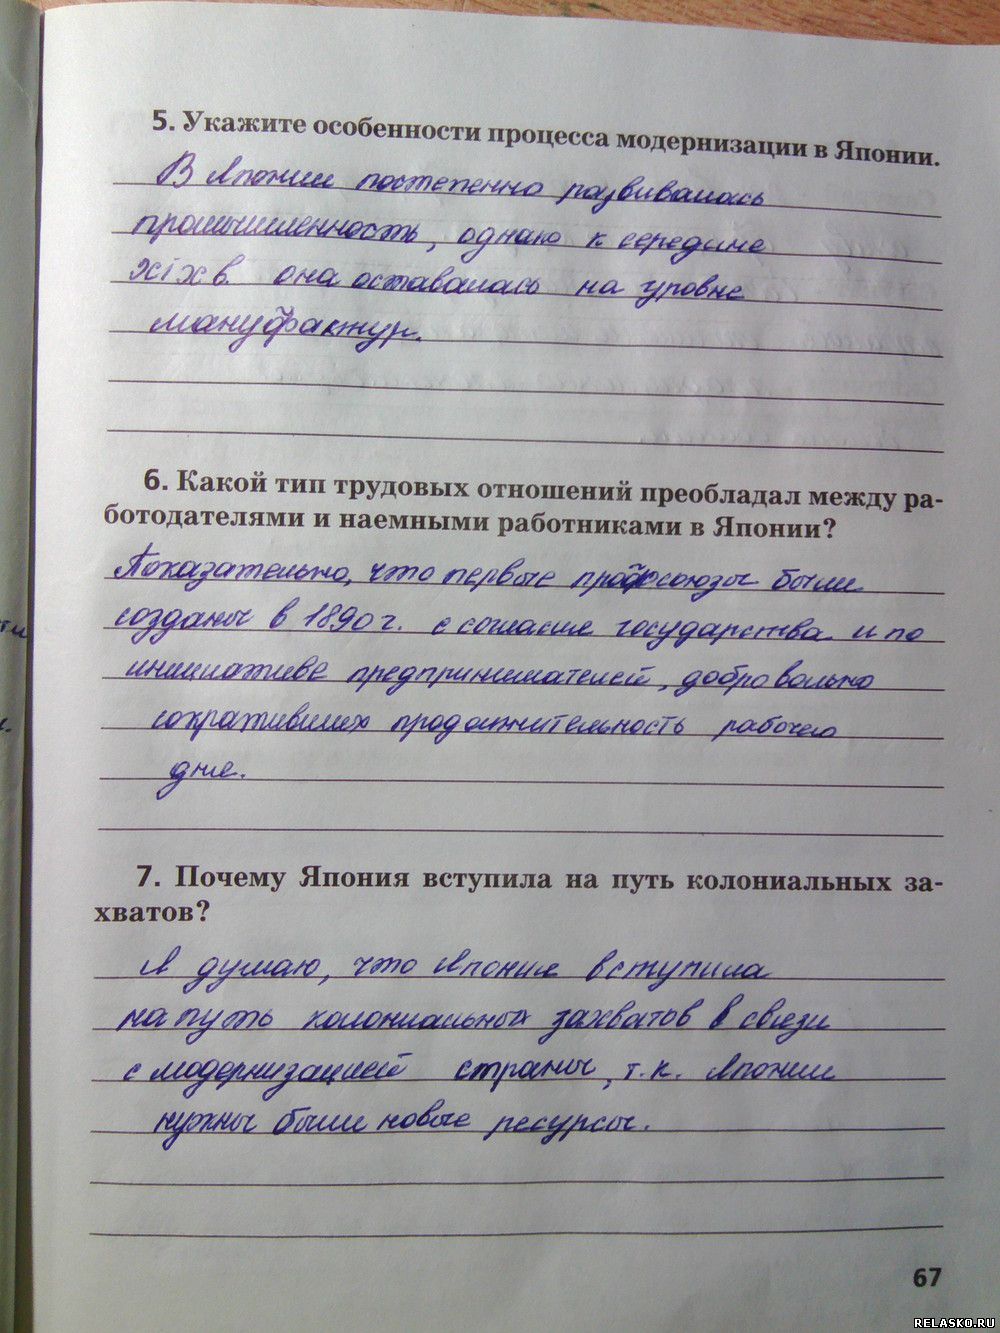 5. Укажите особенности процесса модернизации в Японии.
В Японии постепенно развивалась
промышленность, однако к середине
XIX в. она оставалась на уровне
мануфактур.
6. Какой тип трудовых отношений преобладал между ра-
ботодателями и наемными работниками в Японии?
Показательно, что первые профсоюзы были
созданы в 1890 г. с согласия государства и по
инициативе предпринимателей, добровольно
сокративших продолжительность рабочего
дня.
7. Почему Япония вступила на путь колониальных за-
хватов?
Я думаю, что Япония вступила
на путь колониальных захватов в связи
с модернизацией страны, т.к. Японии
нужны были новые ресурсы.
67
RELASKO.RU